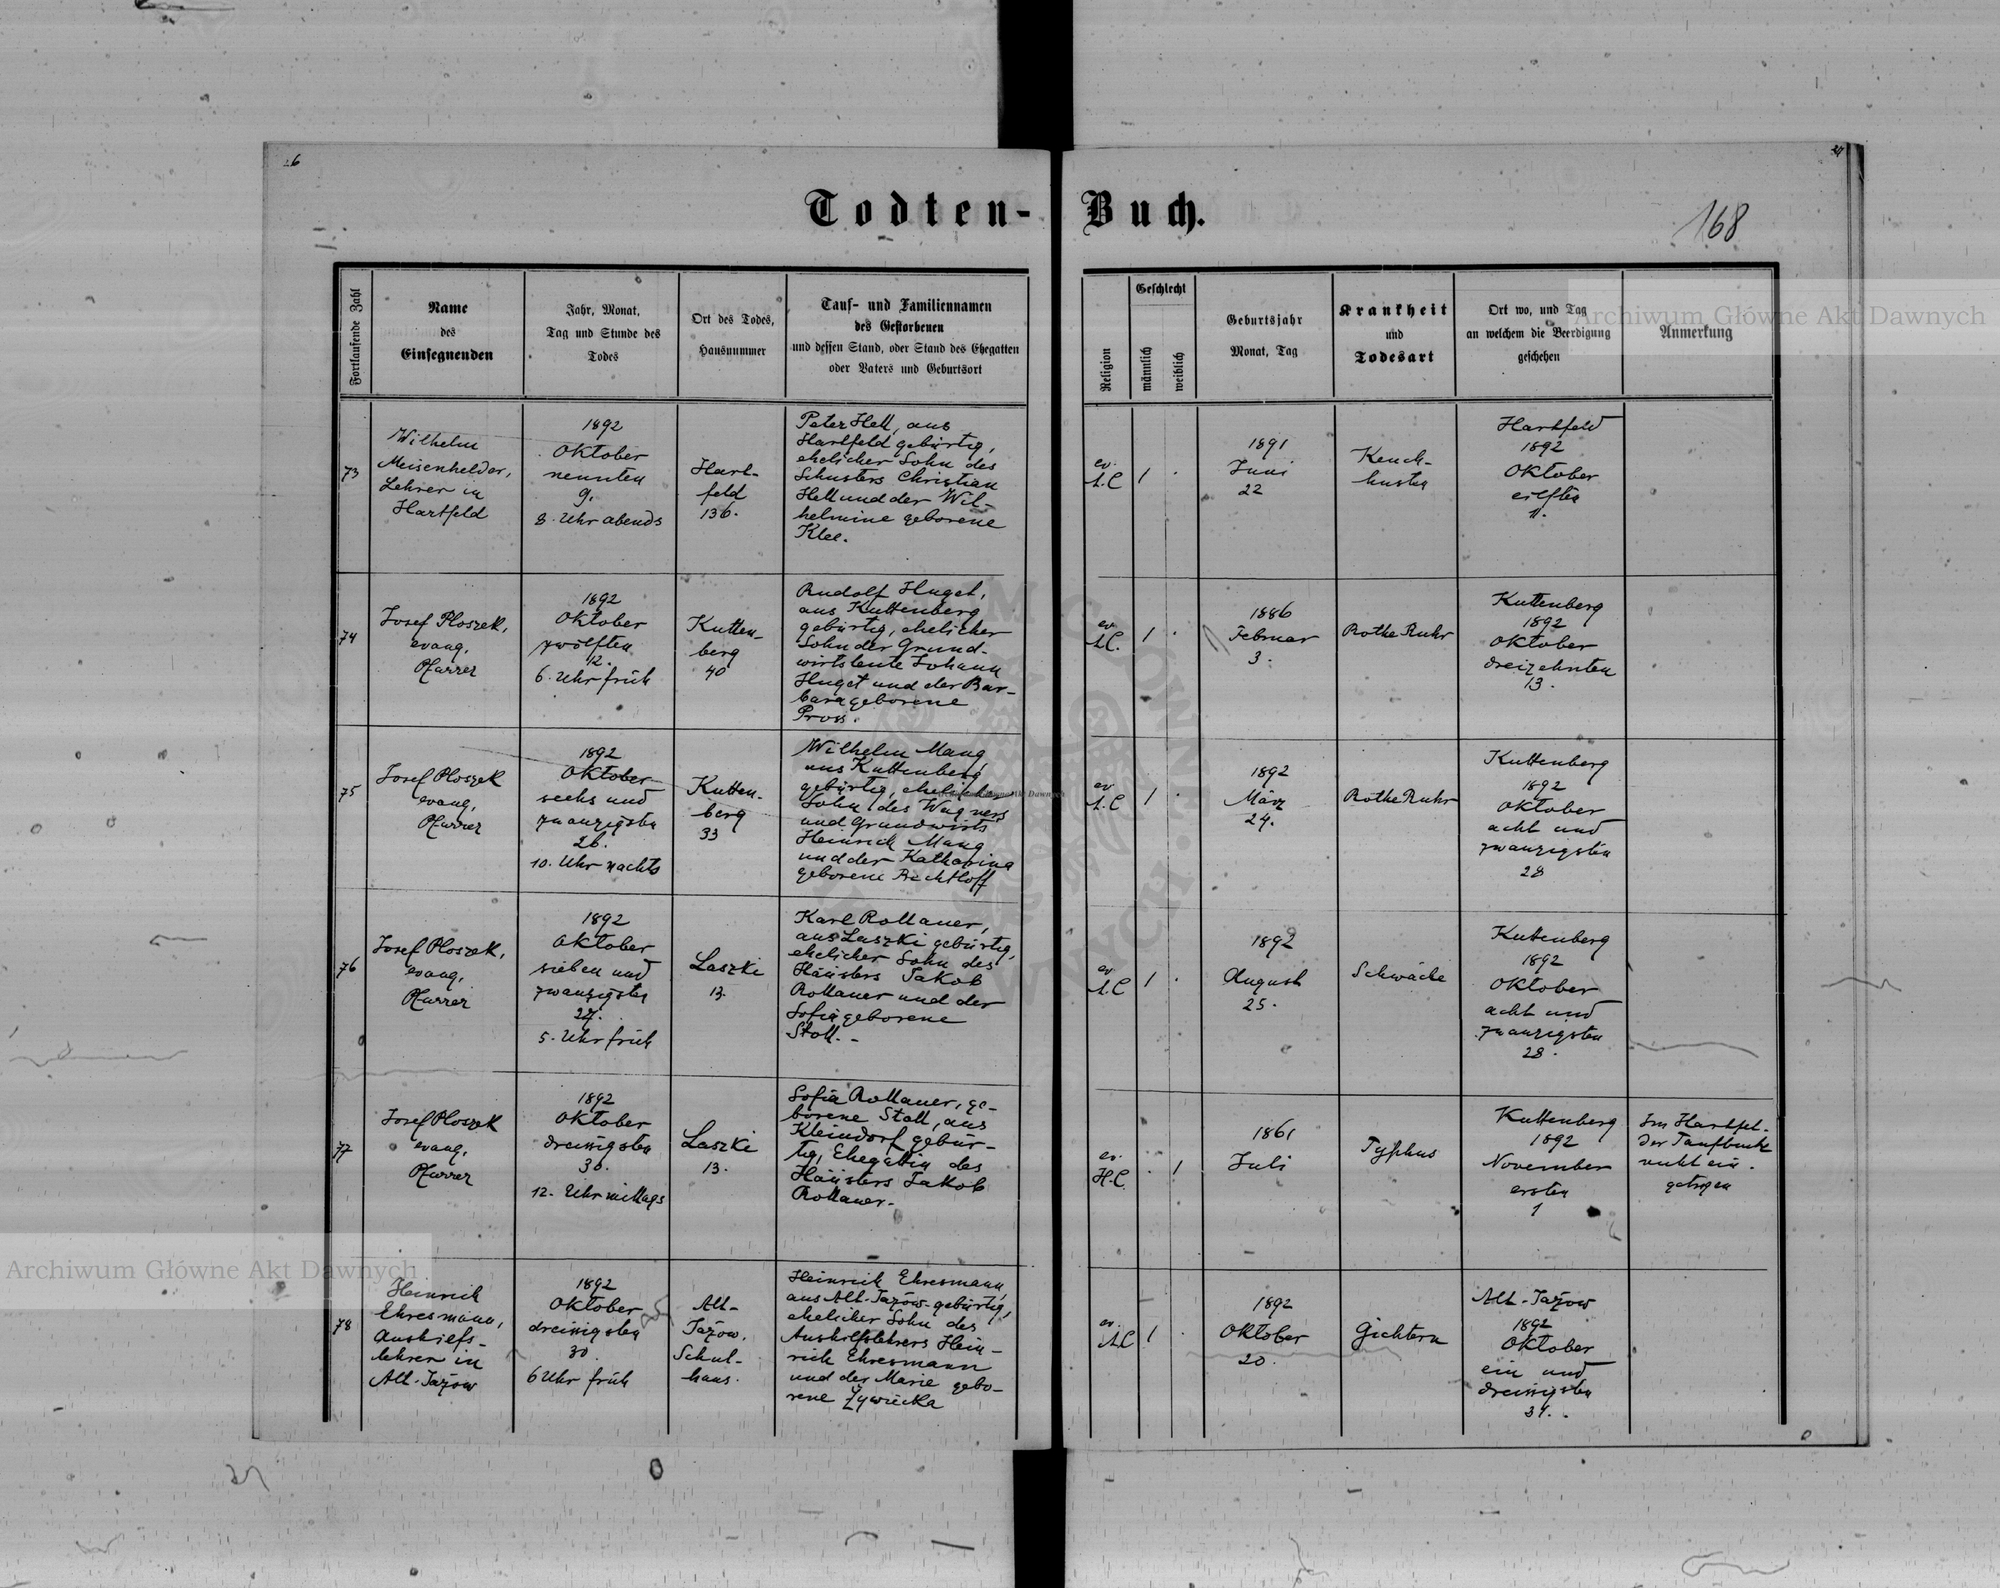 26
27
168
Todten-Buch.
Fortlaufende Zahl
Name
des
Einsegnenden
Jahr, Monat,
Tag und Stunde des
Todes
Ort des Todes,
Hausnummer
Tauf- und Familiennamen
des Gestorbenen
und dessen Stand, oder Stand des Ehegatten
oder Vaters und Geburtsort
Religion
Geschlecht
männlich
weiblich
Geburtsjahr
Monat, Tag
Krankheit
und
Todesart
Ort wo, und Tag
an welchem die Beerdigung
geschehen
Anmerkung
73
Wilhelm
Meisenhelder,
Lehrer in
Hartfeld
1892
Oktober
neunten
9.
8. Uhr abends
Hart-
feld
136.
Peter Hell, aus
Hartfeld gebürtig,
ehelicher Sohn des
Schusters Christian
Hell und der Wil-
helmine geborene
Klee.
ev.
A.C
1
.
1891
Juni
22
Keuch-
husten
Hartfeld
1892
Oktober
eilften
11.
74
Josef Ploszek,
evang.
Pfarrer
1892
Oktober
zwölften
12.
6. Uhr früh
Kutten-
berg
40
Rudolf Huget,
aus Kuttenberg
gebürtig, ehelicher
Sohn der Grund-
wirtsleute Johann
Huget und der Bar-
bara geborene
Pross.
ev.
A.C.
1
.
1886
Februar
3.
Rothe Ruhr
Kuttenberg
1892
Oktober
dreizehnten
13.
75
Josef Ploszek
evang.
Pfarrer
1892
Oktober
sechs und
zwanzigsten
26.
10. Uhr nachts
Kutten-
berg
33
Wilhelm Mang
aus Kuttenberg
gebürtig, ehelicher
Sohn des Wagners
und Grundwirts
Heinrich Mang
und der Katharina
geborene Bechtloff
ev
A.C
1
.
1892
März
24.
Rothe Ruhr
Kuttenberg
1892
Oktober
acht und
zwanzigsten
28
76
Josef Ploszek,
evang.
Pfarrer
1892
Oktober
sieben und
zwanzigsten
27.
5. Uhr früh
Laszki
13.
Karl Rollauer,
aus Laszki gebürtig,
ehelicher Sohn des
Häuslers Jakob
Rollauer und der
Sofia geborene
Stoll. -
ev
A.C
1
.
1892
August
25.
Schwäche
Kuttenberg
1892
Oktober
acht und
zwanzigsten
28.
77
Josef Ploszek
evang.
Pfarrer
1892
Oktober
dreissigsten
30.
12. Uhr mittags
Laszki
13.
Sofia Rollauer, ge-
borene Stoll, aus
Kleindorf gebür-
tig, Ehegattin des
Häuslers Jakob
Rollauer.
ev.
H.C.
.
1
1861
Juli
Typhus
Kuttenberg
1892
November
ersten
1
Im Hartfel-
der Taufbuche
nicht ein-
getragen
78
Heinrich
Ehresmann,
Aushilfs-
lehrer in
Alt-Jazow
1892
Oktober
dreissigsten
30
6 Uhr früh
Alt-
Jazow.
Schul-
haus.
Heinrich Ehresmann,
aus Alt-Jazow gebürtig,
ehelicher Sohn des
Aushilfslehrers Hein-
rich Ehresmann
und der Marie gebo-
rene Zywiecka
ev.
A.C
1
.
1892
Oktober
20.
Gichtern
Alt-Jazow
1892
Oktober
ein und
dreissigsten
31.
Archiwum Główne Akt Dawnych
Archiwum Główne Akt Dawnych